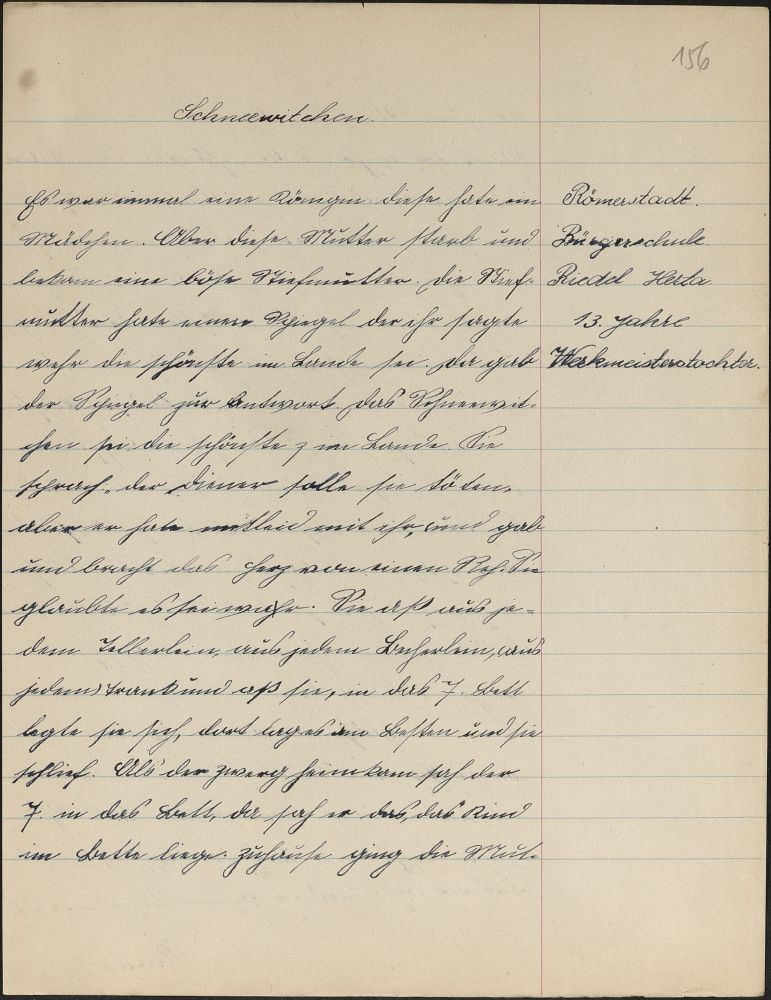 156
Schneewitchen.
Es war einmal eine Königin diese hate ein
Mädchen. Aber diese Mutter starb und
bekam eine böse Stiefmutter. Die Stief-
mutter hate einen Spiegel der ihr sagte
wehr die schönste im Lande sei. Da gab
der Spiegel zur Antwort das Schneewit-
chen sei die schönste im Lande. Sie
sprach, der Diener solle sie töten,
aber er hate mitleid mit ihr, und gab
und bracht das Herz von einen Reh. Sie
glaubte es sei wahr. Sie aß aus je-
dem Tellerlein, aus jedem Becherlein, (aus
jedem) trank und aß sie, in das 7. Bett
legte sie sich, dort lag es am Besten und sie
schlief. Als der Zwerg heimkam sah der
7. in das Bett, da sah er das, das Kind
im Bette liege. Zuhause ging die Mut-
Römerstadt.
Bürgerschule.
Riedel Herta
13. Jahre
Werkmeisterstochter.